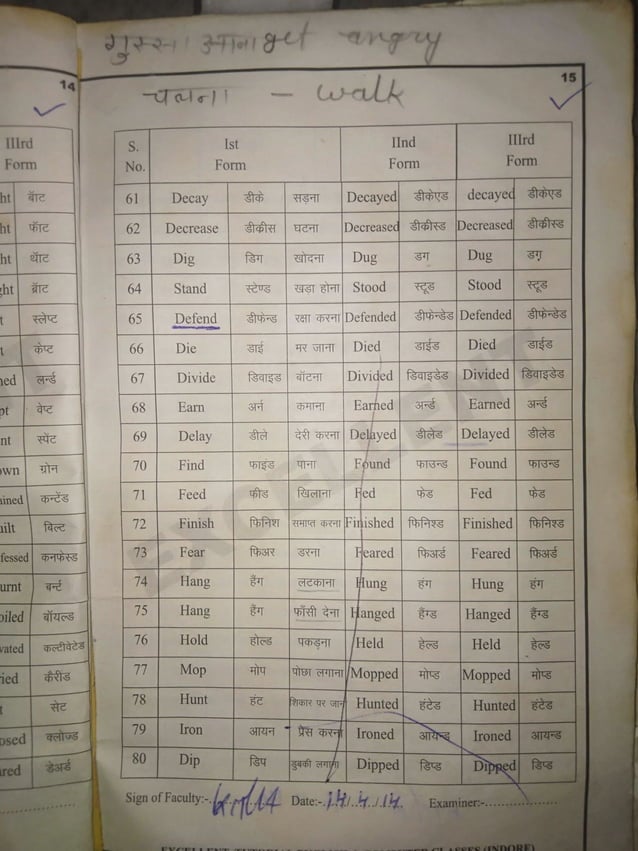 गुस्सा आना get angry
14
15
चलना - walk
IIIrd Form
S. No. Ist Form IInd Form IIIrd Form
ht बॅाट
61 Decay डीके सड़ना Decayed डीकेएड decayed डीकेएड
ht फॅाट
62 Decrease डीक्रीस घटना Decreased डीक्रीस्ड Decreased डीक्रीस्ड
ht थॅाट
63 Dig डिग खोदना Dug डग Dug डग
ght ब्रॅाट
64 Stand स्टेण्ड खड़ा होना Stood स्टूड Stood स्टूड
t स्लेप्ट
65 Defend डीफेन्ड रक्षा करना Defended डीफेन्डेड Defended डीफेन्डेड
t केप्ट
66 Die डाई मर जाना Died डाईड Died डाईड
ned लर्न्ड
67 Divide डिवाइड बाँटना Divided डिवाइडेड Divided डिवाइडेड
pt वेप्ट
68 Earn अर्न कमाना Earned अर्न्ड Earned अर्न्ड
nt स्पेंट
69 Delay डीले देरी करना Delayed डीलेड Delayed डीलेड
own ग्रोन
70 Find फाइंड पाना Found फाउन्ड Found फाउन्ड
ained कन्टेंड
71 Feed फीड खिलाना Fed फेड Fed फेड
uilt बिल्ट
72 Finish फिनिश समाप्त करना Finished फिनिश्ड Finished फिनिश्ड
fessed कनफेस्ड
73 Fear फिअर डरना Feared फिअर्ड Feared फिअर्ड
urnt बर्न्ट
74 Hang हैंग लटकाना Hung हंग Hung हंग
oiled बॉयल्ड
75 Hang हैंग फाँसी देना Hanged हैंग्ड Hanged हैंग्ड
vated कल्टीवेटेड
76 Hold होल्ड पकड़ना Held हेल्ड Held हेल्ड
ried कैरींड
77 Mop मोप पोछा लगाना Mopped मोप्ड Mopped मोप्ड
t सेट
78 Hunt हंट शिकार पर जाना Hunted हंटेड Hunted हंटेड
osed क्लोज्ड
79 Iron आयन प्रेस करना Ironed आयन्ड Ironed आयन्ड
ared डेअर्ड
80 Dip डिप डुबकी लगाना Dipped डिप्ड Dipped डिप्ड
Sign of Faculty:- Date:- 14/4/14 Examiner:-
EXCELLENT